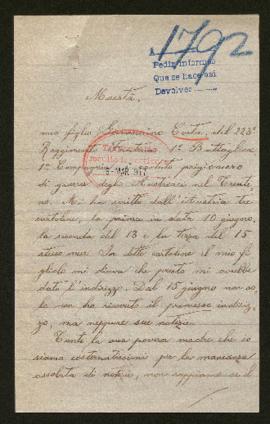 1792
Pedir informes
Que se hace así
Devolver
Maestà,
mio figlio Giovannino, del 223º
Reggimento Fanteria 1º Battaglione
1ª Compagnia prigioniero
di guerra degli Austriaci nel Trenti-
no. Mi ha scritto dall'Austria tre
cartoline, la prima in data 10 giugno,
la seconda del 13 e la terza del 15
stesso mese. In dette cartoline il mio fi-
gliolo mi diceva che presto mi avrebbe
dato l'indirizzo. Dal 15 giugno non so-
lo non ho ricevuto il promesso indiriz-
zo, ma neppure sue notizie.
Tanto la sua povera madre che io
siamo costernatissimi per la mancanza
assoluta di notizie, non sappiamo se il